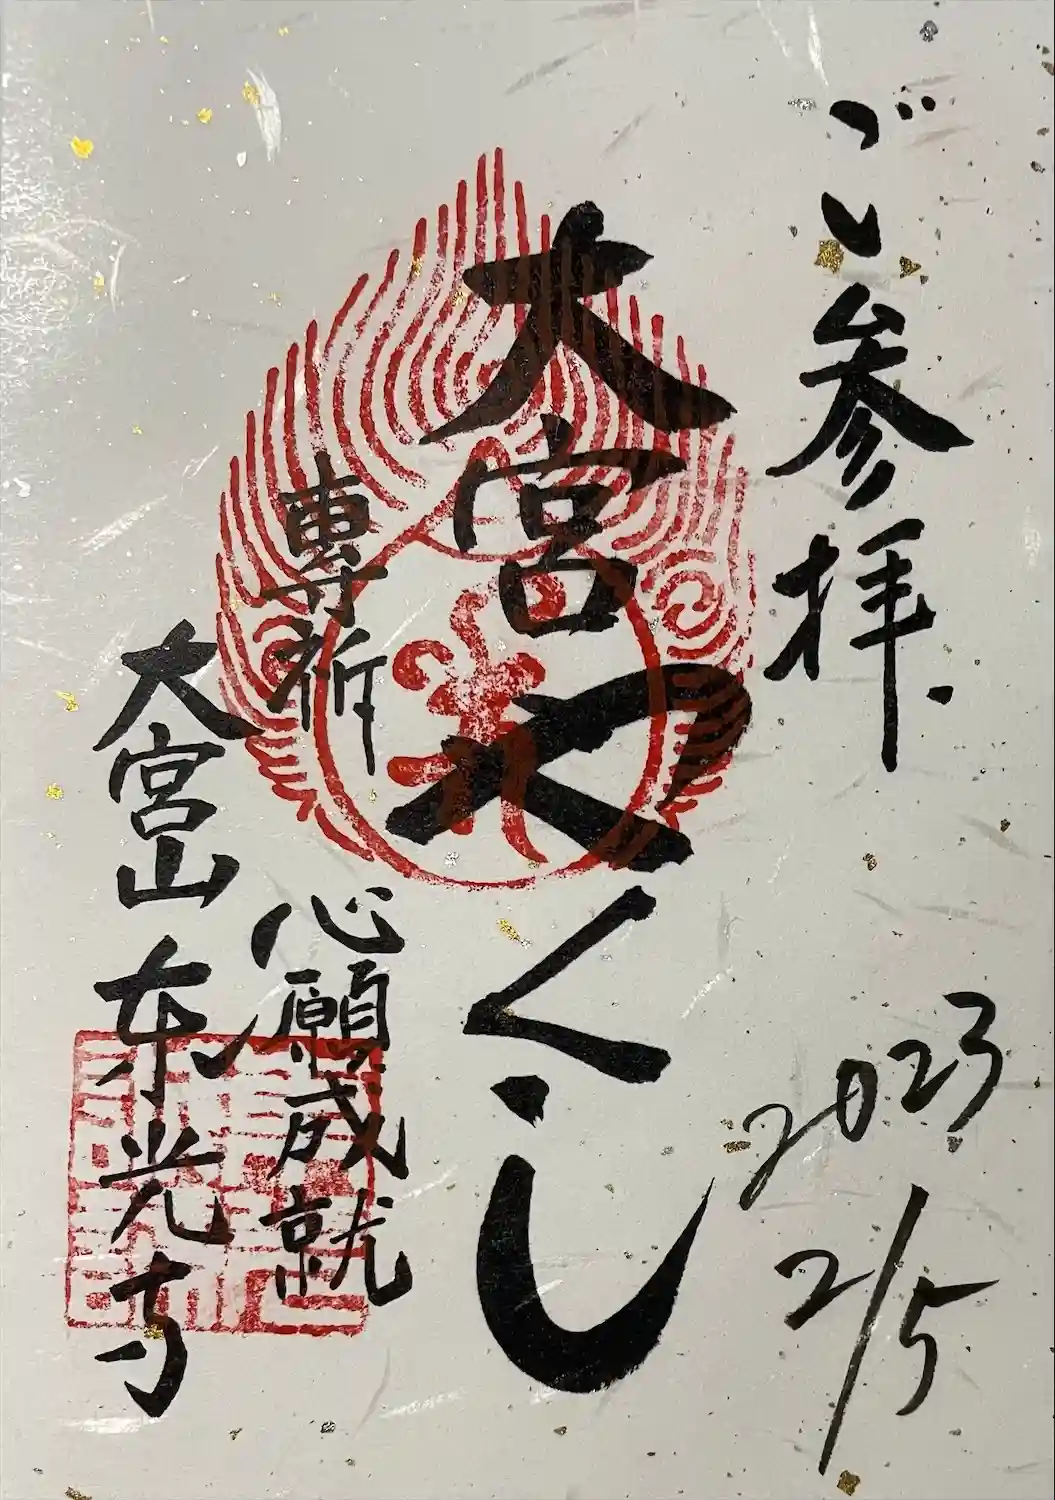 ご参拝
2023
2/5
大宮やくし
専祈
心願成就
大宮山東光寺